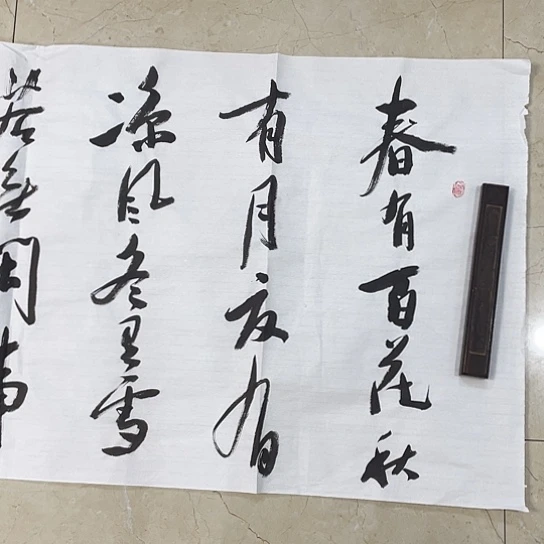 春有百花秋
有月夏有
凉风冬有雪
若無閑事